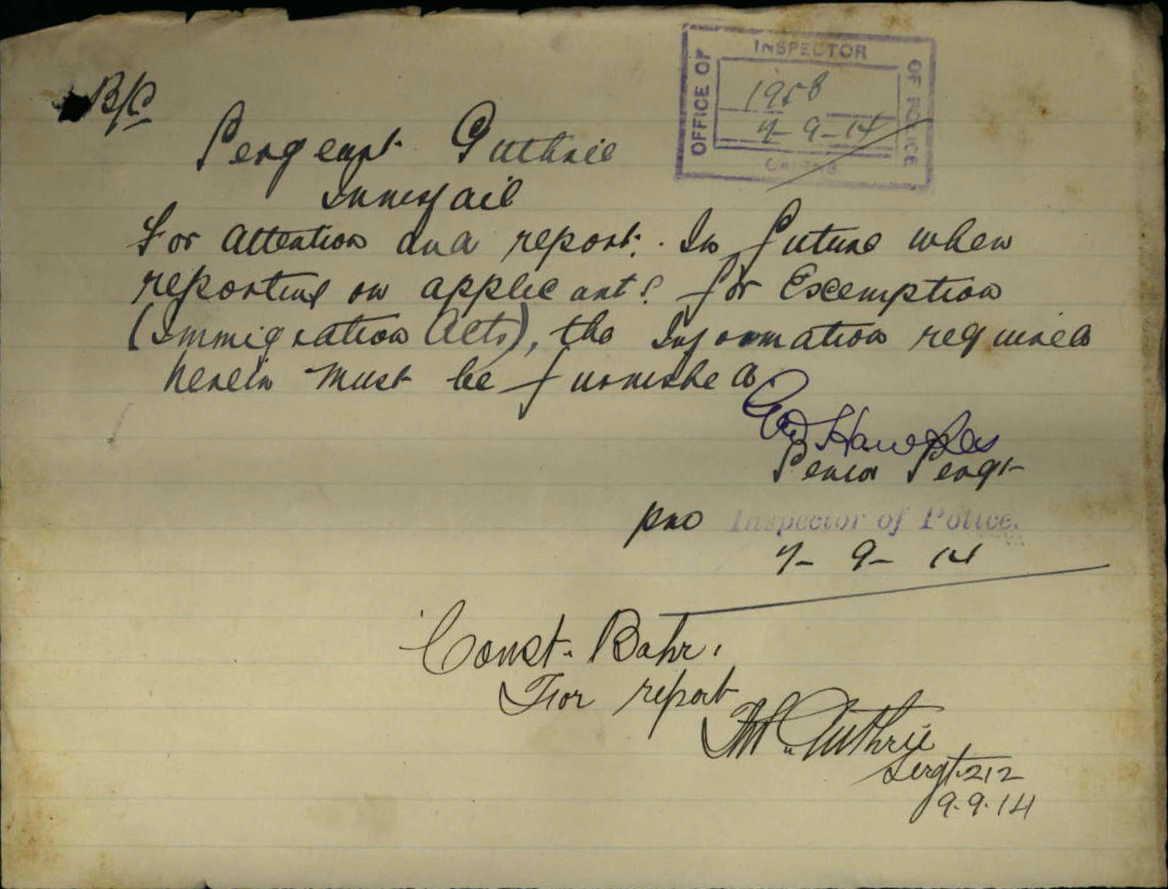 B/C
OFFICE OF
INSPECTOR
OF POLICE
1958
7-9-14
CAIRNS
Sergeant Guthrie
Innisfail
For attention and report. In future when
reporting on applicants for Exemption
(Immigration Acts), the Information required
herein must be furnished
Hawkes
Senior Sergt
pro Inspector of Police.
7-9-14
Const. Bahr.
For report
Guthrie
Sergt. 212
9.9.14